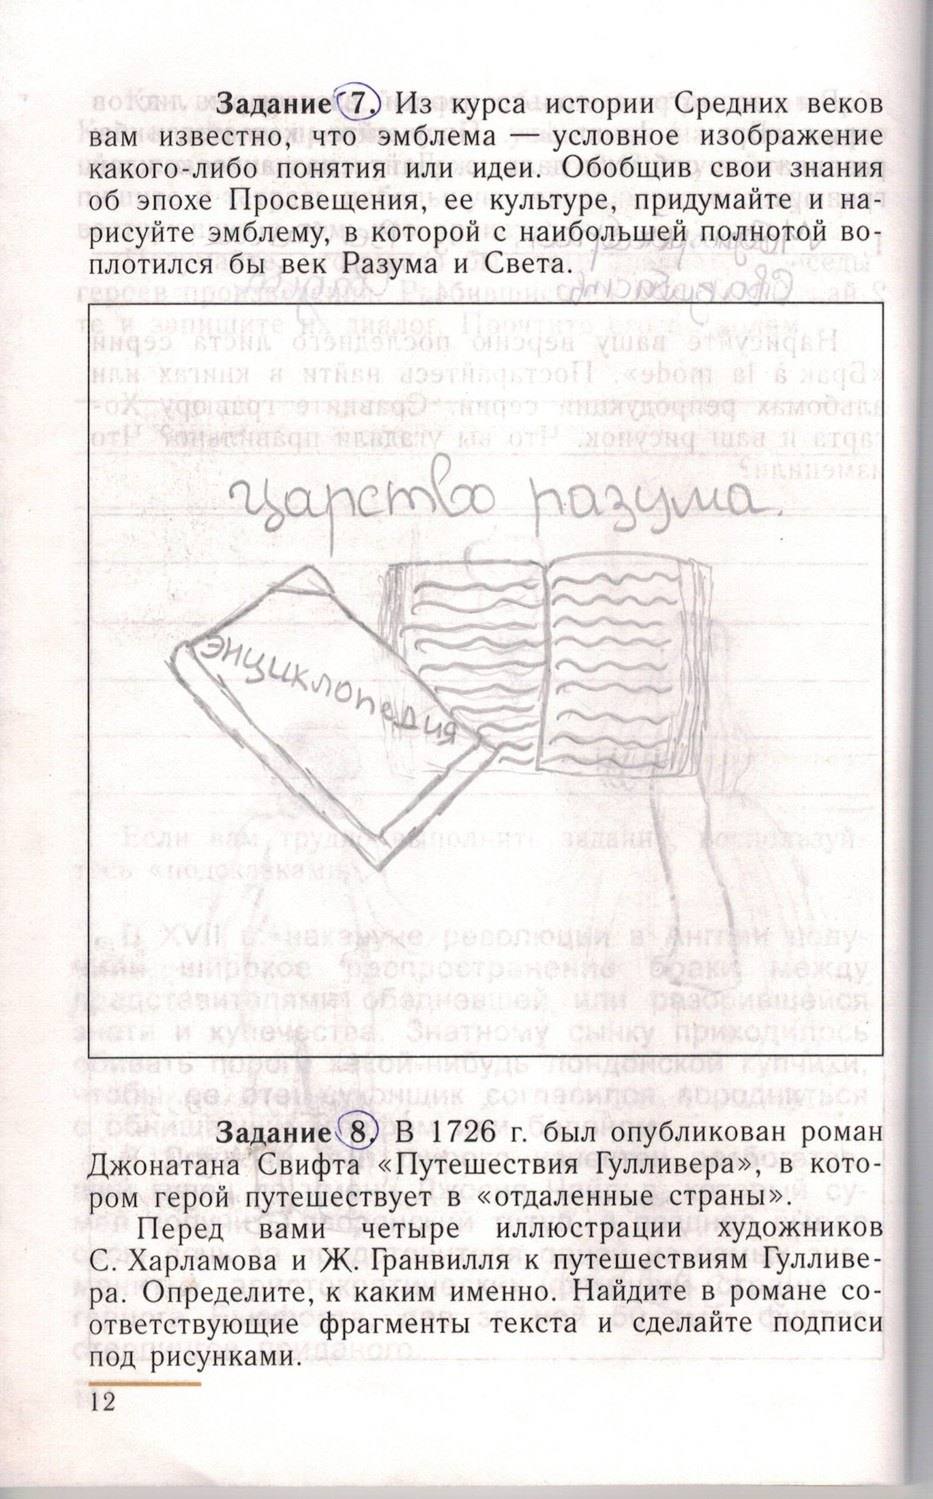 Задание 7. Из курса истории Средних веков
вам известно, что эмблема — условное изображение
какого-либо понятия или идеи. Обобщив свои знания
об эпохе Просвещения, ее культуре, придумайте и на-
рисуйте эмблему, в которой с наибольшей полнотой во-
плотился бы век Разума и Света.
царство разума.
энциклопедия
Задание 8. В 1726 г. был опубликован роман
Джонатана Свифта «Путешествия Гулливера», в кото-
ром герой путешествует в «отдаленные страны».
Перед вами четыре иллюстрации художников
С. Харламова и Ж. Гранвилля к путешествиям Гулливе-
ра. Определите, к каким именно. Найдите в романе со-
ответствующие фрагменты текста и сделайте подписи
под рисунками.
12